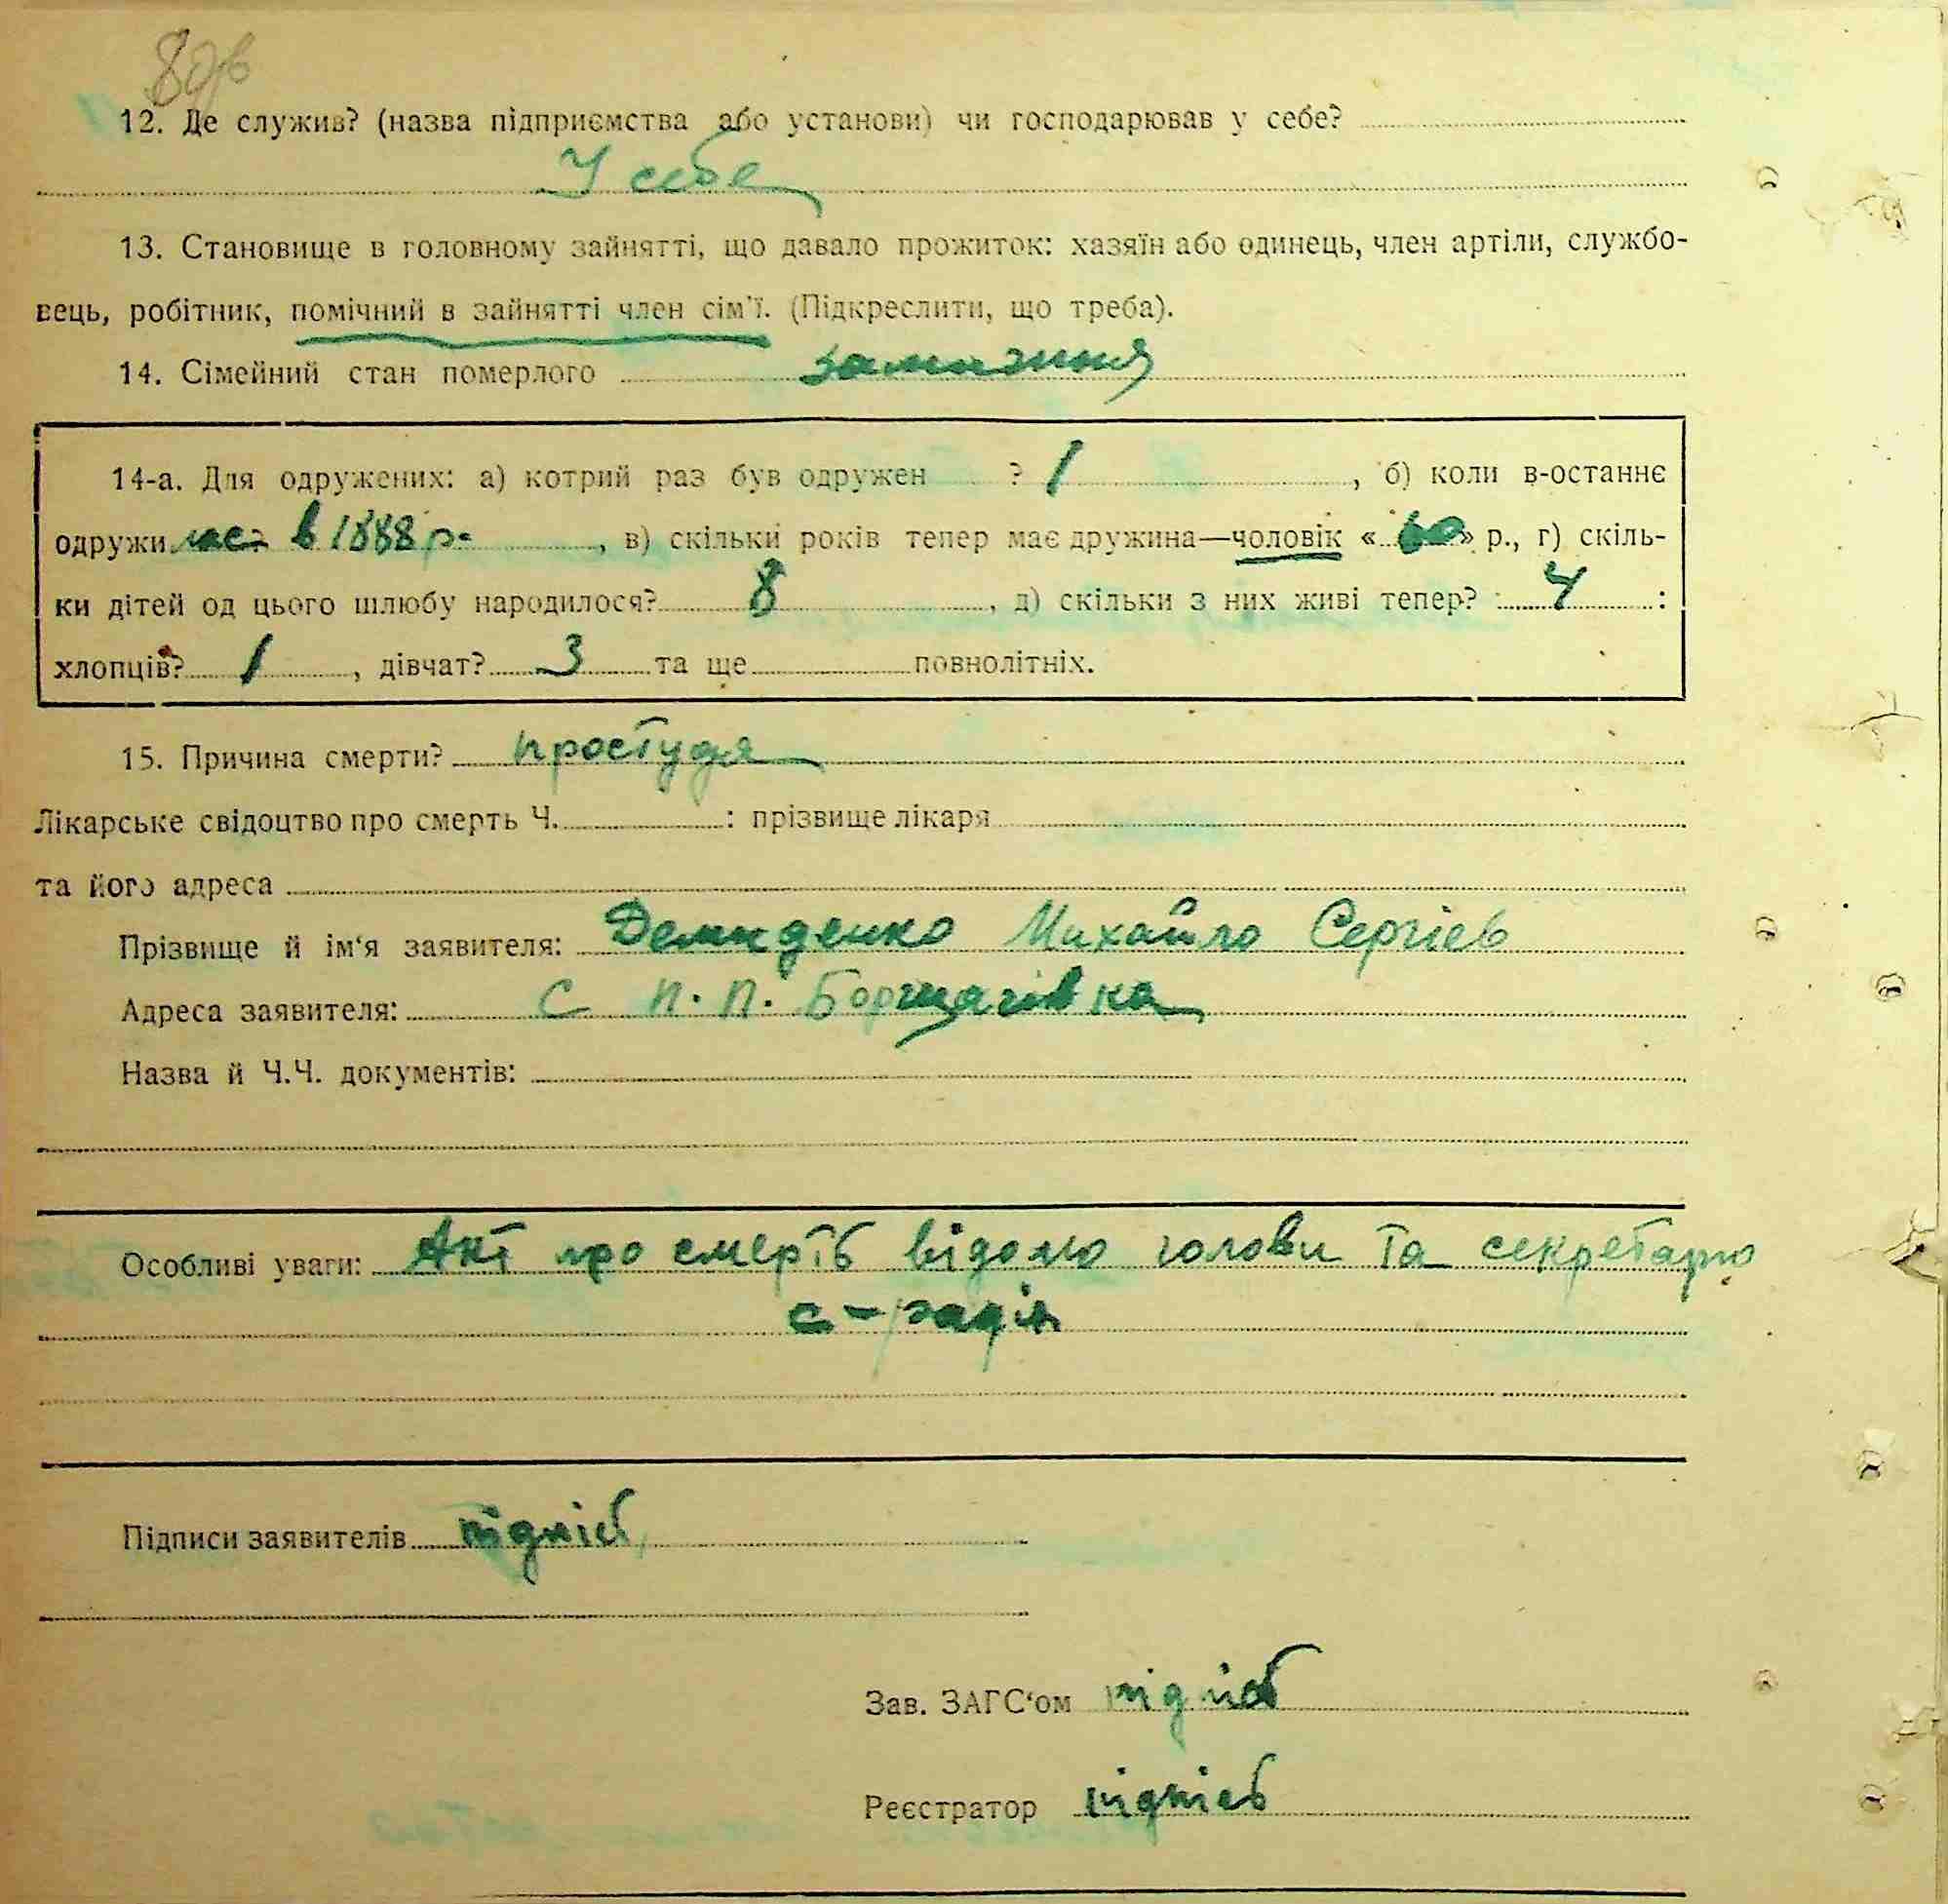 80зв
12. Де служив? (назва підприємства або установи) чи господарював у себе?
У себе
13. Становище в головному зайнятті, що давало прожиток: хазяїн або одинець, член артіли, службо-
вець, робітник, помічний в зайнятті член сім'ї. (Підкреслити, що треба).
14. Сімейний стан померлого замижня
14-а. Для одружених: а) котрий раз був одружен ? 1, б) коли в-останнє
одружилась в 1888 р., в) скільки років тепер має дружина—чоловік «60» р., г) скіль-
ки дітей од цього шлюбу народилося? 8, д) скільки з них живі тепер? 4:
хлопців? 1, дівчат? 3 та ще повнолітніх.
15. Причина смерти? простуда
Лікарське свідоцтво про смерть Ч. : прізвище лікаря
та його адреса
Прізвище й ім'я заявителя: Демиденко Михайло Сергіев
Адреса заявителя: с П. П. Борщагівка
Назва й Ч.Ч. документів:
Особливі уваги: Акт про смерть відомо голови та секретарю
с-радів
Підписи заявителів підпісь
Зав. ЗАГС'ом підпісь
Реєстратор підпісь